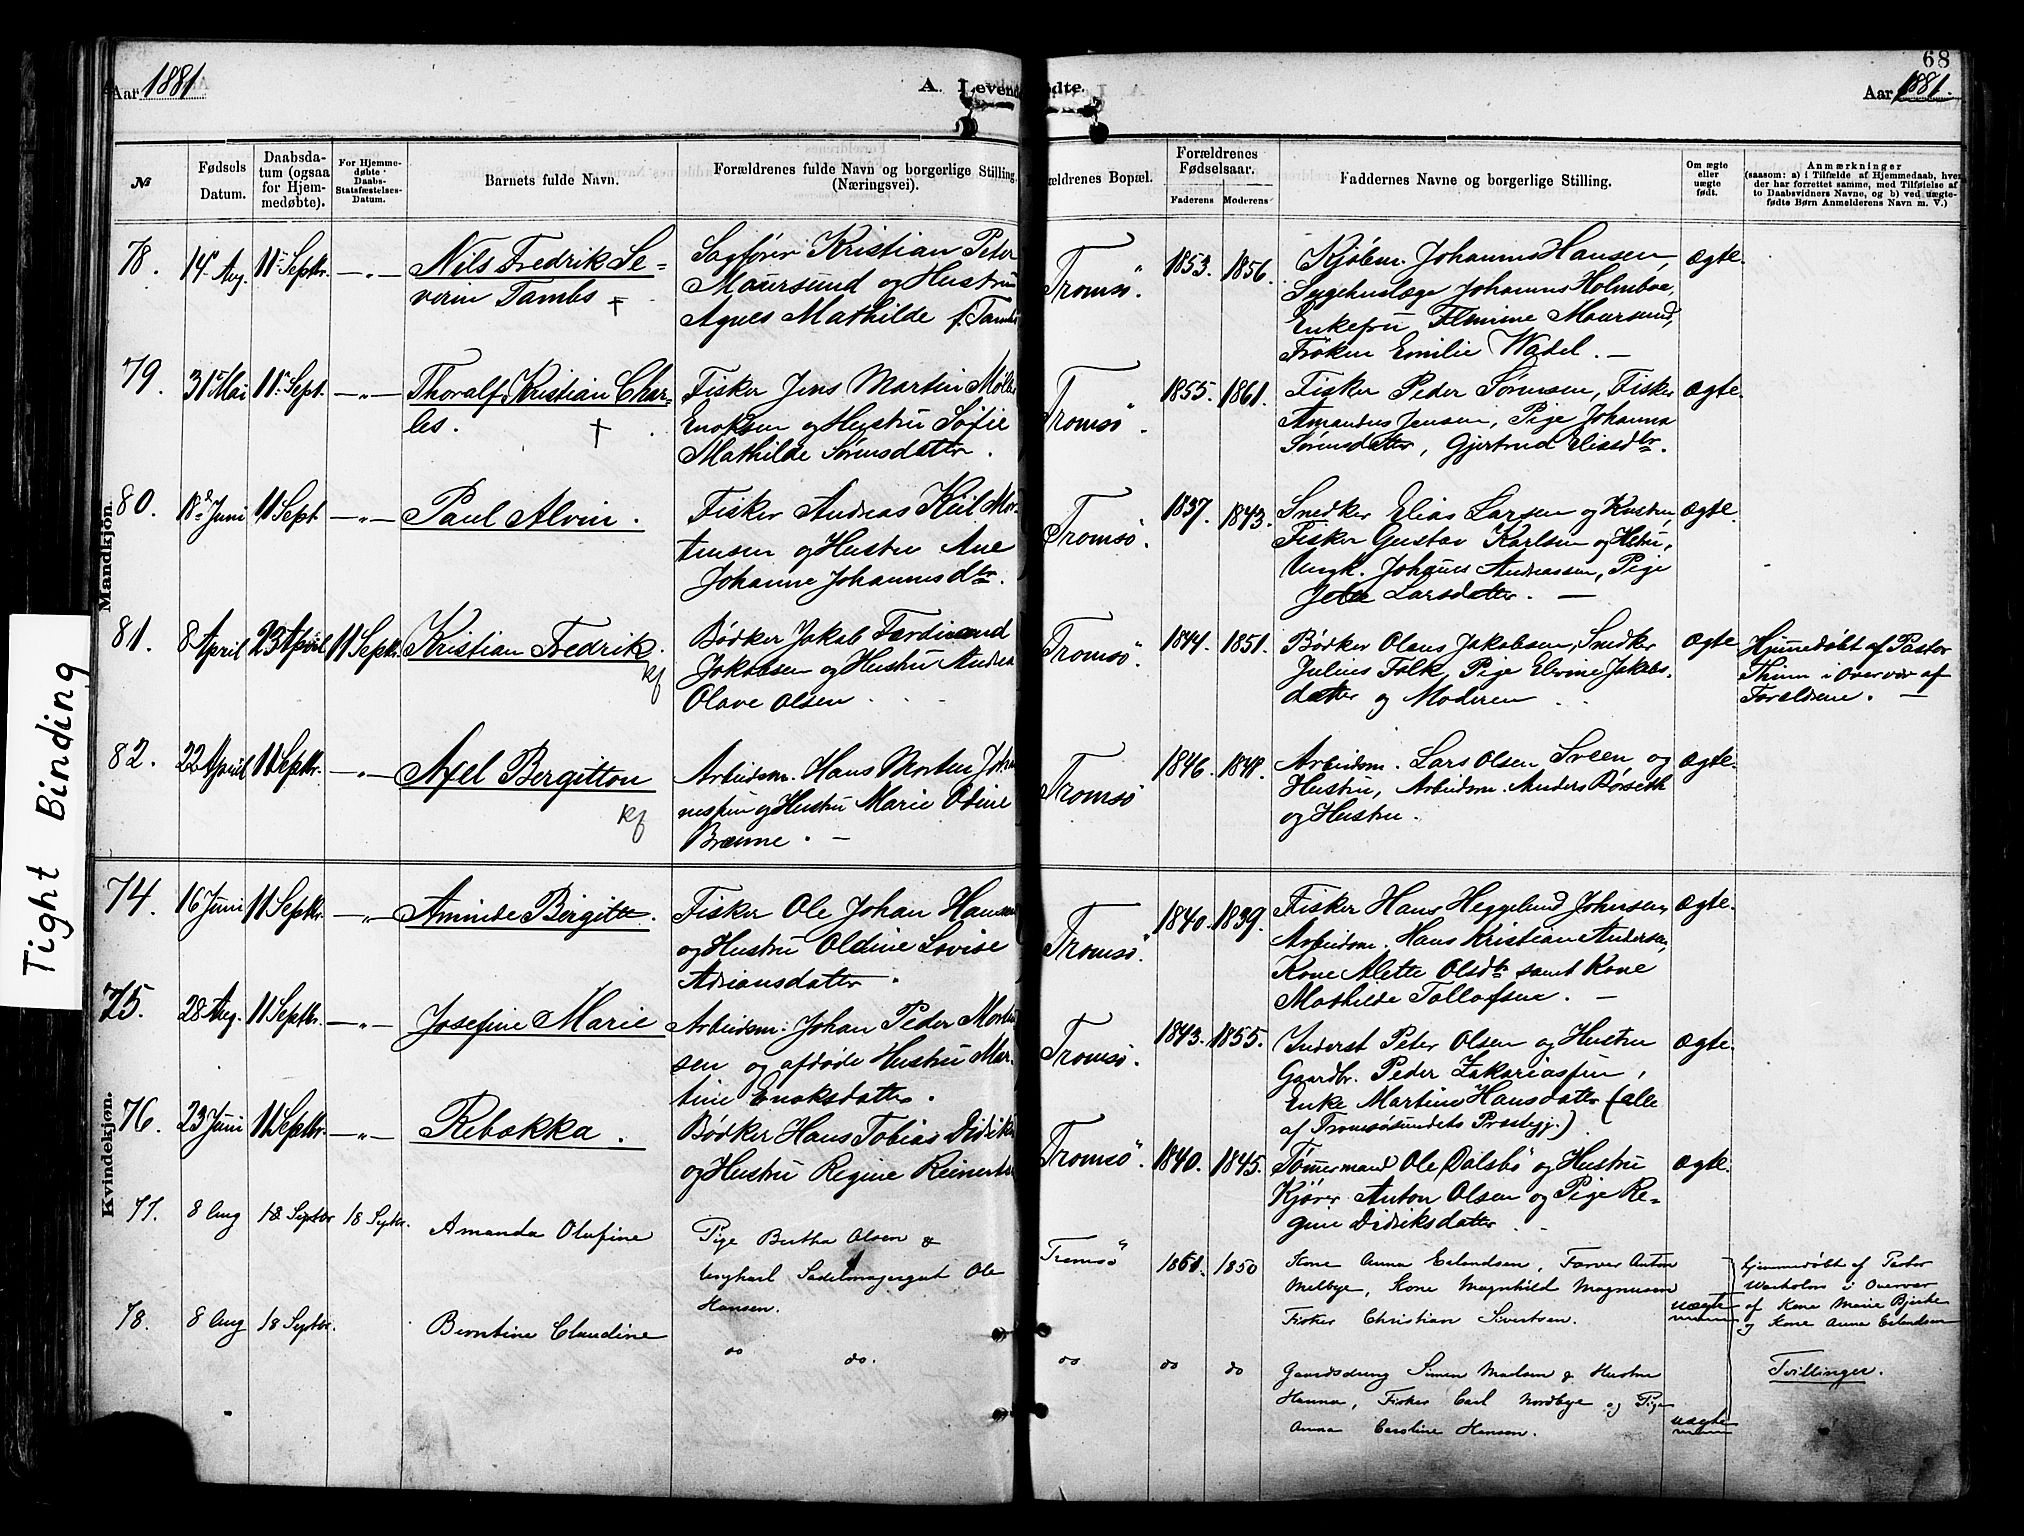 68
Aar 1881
A. Levendefødte.
Aar 1881.
№
Fødsels Datum.
Daabsdatum (ogsaa for Hjemmedøbte).
For Hjemmedøbte Daabs-Statsfæstelses-Datum.
Barnets fulde Navn.
Forældrenes fulde Navn og borgerlige Stilling (Næringsvei).
Forældrenes Bopæl.
Forældrenes Fødselsaar.
Faderens
Moderens
Faddernes Navne og borgerlige Stilling.
Om ægte eller uægte født.
Anmærkninger
(saasom: a) i Tilfælde af Hjemmedaab, hver
der har forrettet samme, med Tilføielse af
to Daabsvidners Navne, og b) ved uægte-
fødte Børn Anmelderens Navn m. V.)
Tight Binding
Mandkjøn.
78. 14 Aug. 11 Septbr. —"— Nils Fredrik Se-
verin Tambs +
Sagfører Kristian Peter
Maursund og Hustru
Agnes Mathilde f. Tambs
Tromsö. 1853. 1856.
Kjøbm. Johannes Hansen,
Sygehuslæge Johannes Holmboe,
Enkefru Maursund,
Frøken Emilie Wadel. —
ægte.
79. 31 Mai 11 Sept. —"— Thoralf Kristian Char-
les. +
Fisker Jens Martin
Enoksen og Hustru Sofie
Mathilde Sørensdatter.
Tromsö. 1855. 1861.
Fisker Peder Sørensen, Fisker
Amandus Jensen, Pige Johanna
Sörensdatter, Gjertrud Elisedtr.
ægte.
80. 18 Juni 11 Sept. —"— Paul Alvin.
Fisker Andreas Kiil Mor-
tensen og Hustru Ane
Johanne Johannesdtr.
Tromsö. 1837. 1843.
Snedker Elias Larsen og Hustru,
Fisker Gustav Karlsen og Hstru,
Ungk. Johanes Andreassen, Pige
Larsdatter. —
ægte.
81. 8 April 23 April 11 Septbr. Kristian Fredrik.
Kf
Bødker Jakob Ferdinand
Jakobsen og Hustru Andrea
Olave Olsen
Tromsö. 1844. 1851.
Bödker Olaus Jakobsen, Snedker
Julius Falk, Pige Elvine Jakobs-
datter og Moderen
ægte
Hjemmedøbt af Pastor
Thun i Overvær af
Forældrene. —
82. 22 April 11 Septbr. —"— Axel Bergitton
Kf
Arbeidsm. Hans Morten Johan-
nessen og Hustru Marie Odine
Brænne. —
Tromsö 1846. 1848.
Arbeidsm. Lars Olsen Sveen og
Hustru, Arbeidsm. Anders Børseth
og Hustru.
ægte.
Kvindekjøn.
74. 16 Juni 11 Septbr. —"— Aminde Birgitte.
Fisker Ole Johan Hansen
og Hustru Oldine Lovise
Adriansdatter.
Tromsö. 1840. 1839.
Fisker Hans Heggelund Johnsen,
Arbeidsm. Hans Kristian Andersen,
Kone Alette Olsdtr samt Kone
Mathilde Tollofsen. —
ægte.
75. 28 Aug. 11 Septbr. —"— Josefine Marie
Arbeidsm. Johan Peder Morten-
sen og afdøde Hustru Mar-
tine Enoksdatter.
Tromsö. 1843. 1855.
Inderst Peter Olsen og Hustru
Gaardbr. Peder Zakariassen,
Enke Martine Hansdatter (alle
af Tromsøsundets Prestegj.)
ægte.
76. 23 Juni 11 Septbr. —"— Rebekka.
Bødker Hans Tobias Didrik
og Hustru Regine Reinerts
Tromsö. 1840. 1845.
Tømmermand Ole Dalsbø og Hustru
Kjører Anton Olsen og Pige Re-
gine Didriksdatter.
ægte.
77. 8 Aug 18 Septbr 18 Septbr. Amanda Olufine
Pige Berthe Olsen &
Ungkarl Sadelmagersvent Ole
Hansen.
Tromsö 1850
Kone Anna Erlandsen, Farver Anton
Melbye, Kone Magnhild Magnusen
Fisker Christian Sivertsen.
uægte
Hjemmedøbt af Pastor
Waxholm i Overvær
af Kone Marie Bjerke
og Kone Anna Erlandsen
78. 8 Aug 18 Septbr. Berntine Claudine
do do.
do do do
Gaardsdreng Simon Madsen & Hustru
Hanna, Fisker Carl Nordbye og Pige
Anna Caroline Hansen.
uægte
Tvillinger.